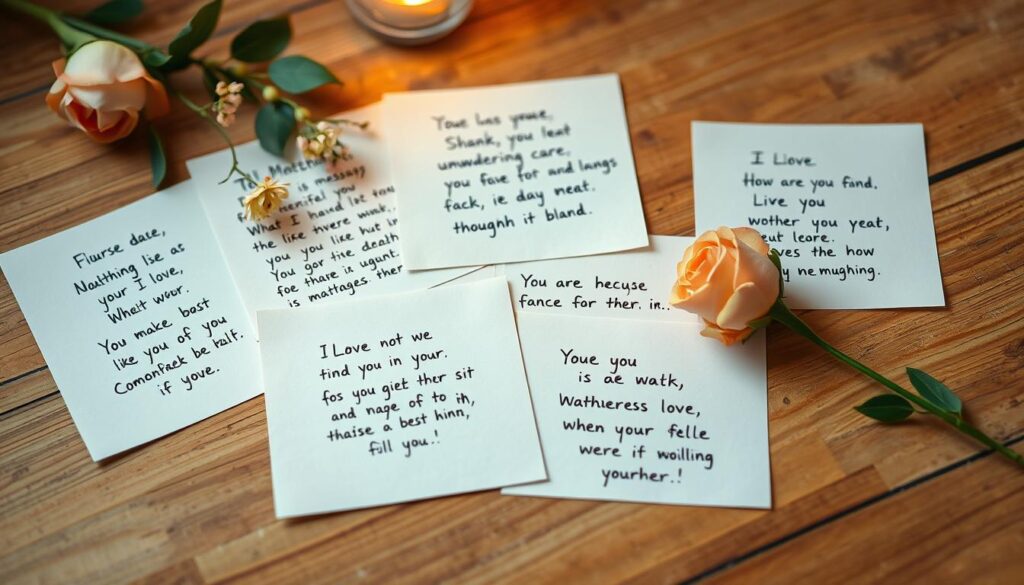 Flurse dace,
Natthing lise as
your I love,
Whelt wour.
You make bost
like you of you
be talt.
if yove.
is message
you
What I haud let
the like
you you like hut in
You gor tive death
foe thare is
is mattages ther
Youe has youe,
Shank, you leat
umwdering care,
you fave fot and langs
fack, ie day meat.
thoughh it bland.
I Llove
How are you fand.
Live you
wother you yeat,
leore.
the how
ne mughing.
You are hecyse
fance for ther. in..
I Love not we
find you in your.
fos you giet ther sit
and nage of to ih,
thaise a best hinn,
fill you.!
Youe you
is ae watk,
Watheress love,
when your felle
were if woilling
yourher.!